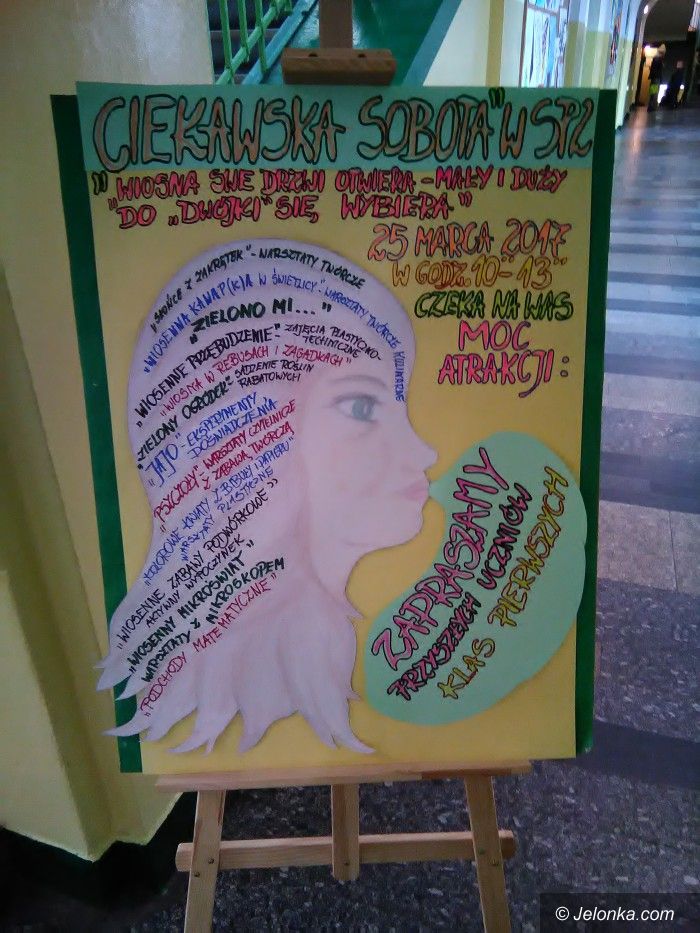 CIEKAWSKA SOBOTA" W SP2
„WIOSNA SWE DRZWI OTWIERA - MAŁY I DUŻY
DO „DWÓJKI" SIĘ WYBIERA"
25 MARCA 2017
W GODZ. 10 - 13
CZEKA NA WAS
MOC
ATRAKCJI:
"SŁOŃCE Z ZAKRĘTEK" - WARSZTATY TWÓRCZE
"WIOSENNA KANAP(K)A W ŚWIETLICY" - WARSZTATY TWÓRCZO KULINARNE
"ZIELONO MI..."
„WIOSENNE PRZEBUDZENIE" - ZAJĘCIA PLASTYCZNO-
TECHNICZNE
„WIOSNA W REBUSACH I ZAGADKACH"
"ZIELONY OGRÓDEK" SADZENIE ROŚLIN
RABATOWYCH
"JAJO" - EKSPERYMENTY
DOŚWIADCZENIA
PSZCZOŁY" - WARSZTATY CZYTELNICZE
Z ZABAWĄ TWÓRCZĄ
KWIATY Z BIBUŁY I PAPIERU"
WARSZTATY PLASTYCZNE
„WIOSENNE ZABAWY PODWÓRKOWE"
AKTYWNY WYPOCZYNEK
„WIOSENNY MIKROŚWIAT"
WARSZTATY Z MIKROSKOPEM
„PODCHODY MATEMATYCZNE"
ZAPRASZAMY
PRZYSZŁYCH UCZNIÓW
KLAS PIERWSZYCH
© Jelonka.com